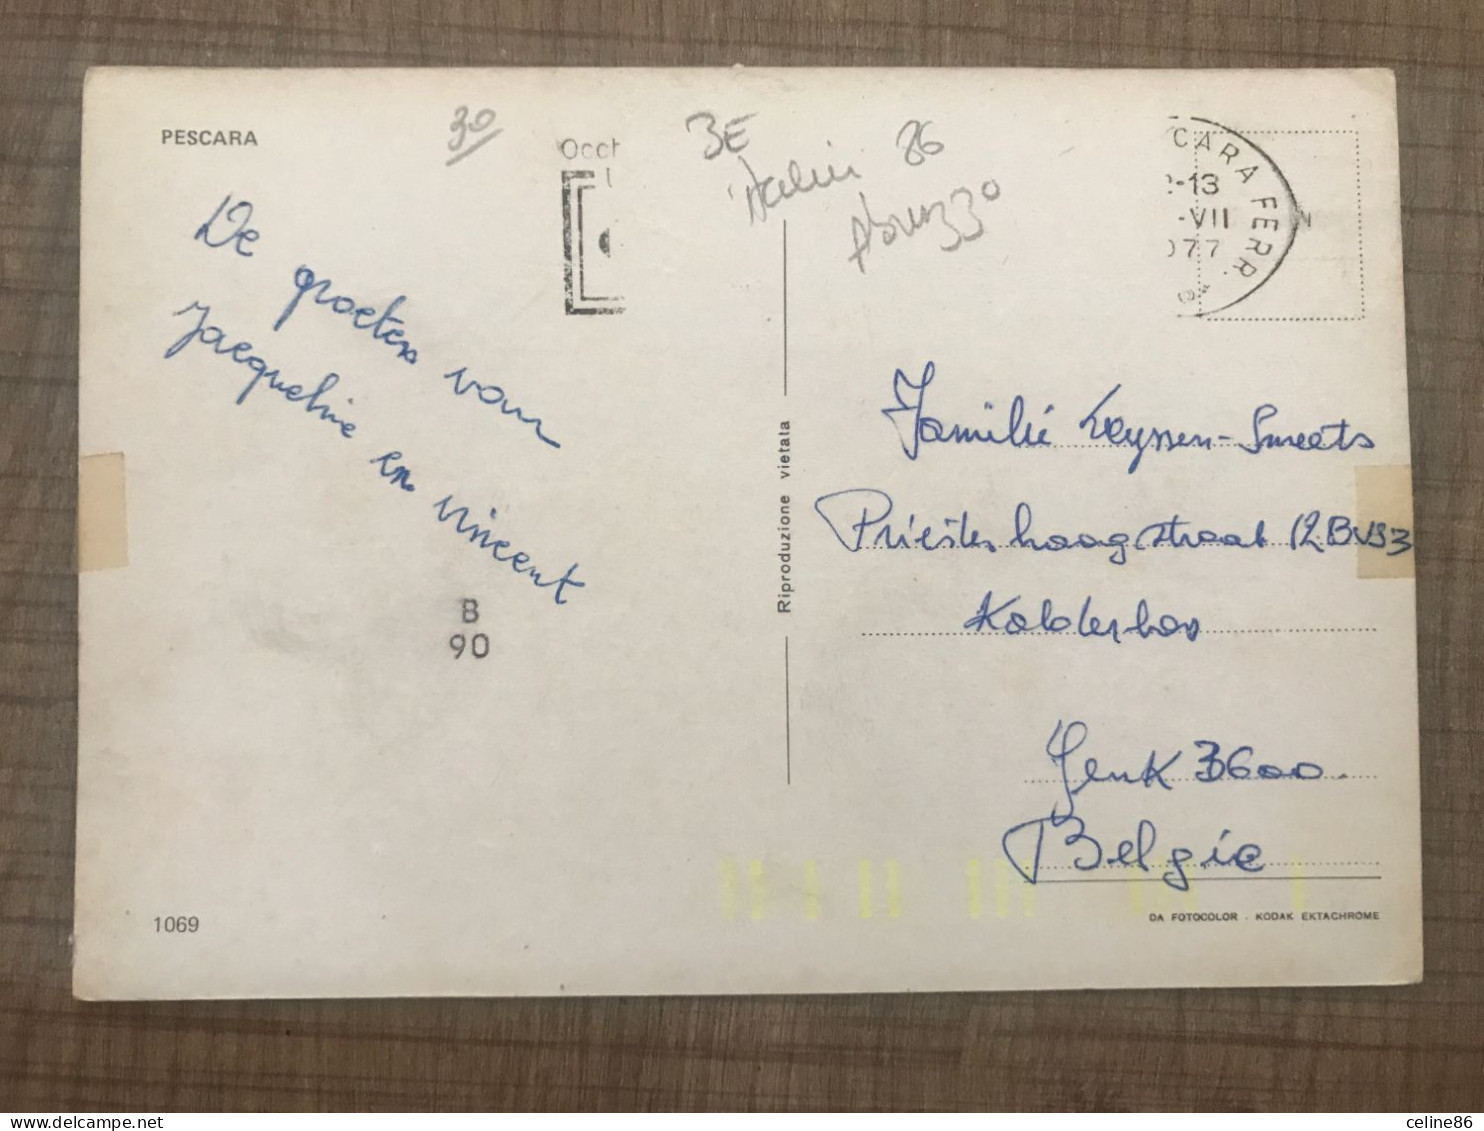 PESCARA
30
Occh
BE
Italie 86
Abruzzo
CARA FERR.
2-13
-VII
977
De groeten van
Jacqueline en Vincent
B
90
Riproduzione vietata
Familie Leyssen-Smeets
Priesterhaagstraat 12 BUS 3
Kolderbos
Genk 3600.
België
1069
DA FOTOCOLOR - KODAK EKTACHROME
celine86